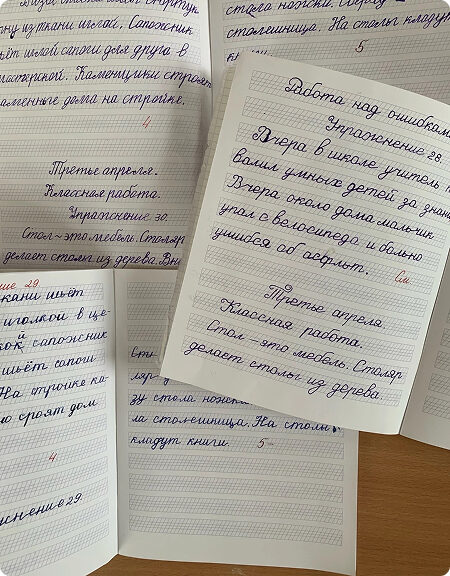 ну из ткани иглой. Сапожник
шьёт иглой сапоги для друга в
мастерской. Каменщики строят
каменные дома на стройке.
4
Третье апреля.
Классная работа.
Упражнение 30.
Стол – это мебель. Столяр
делает столы из дерева.
стола ножки.
столешница. На столы кладут
книги
5
Работа над ошибками
Упражнение 28.
Вчера в школе учитель
валил умных детей за знан
Вчера около дома мальчик
упал с велосипеда и больно
ушибся об асфльт.
См.
Третье апреля
Классная работа.
Стол – это мебель. Столяр
делает столы из дерева.
ние 29.
ткани шьёт
иголкой в це-
сапожник
шьёт сапоги
На стройке ка-
роят дом
4.
жнение 29.
Ст
ляр
зу стола ножки
ла столешница. На столы
кладут книги.
5-